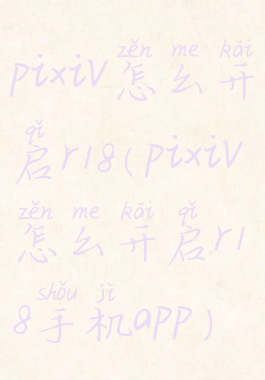 zěn me kāi
pixiv怎么开
qǐ
启r18(pixiv
zěn me kāi qǐ
怎么开启r1
shǒu jī
8手机app)